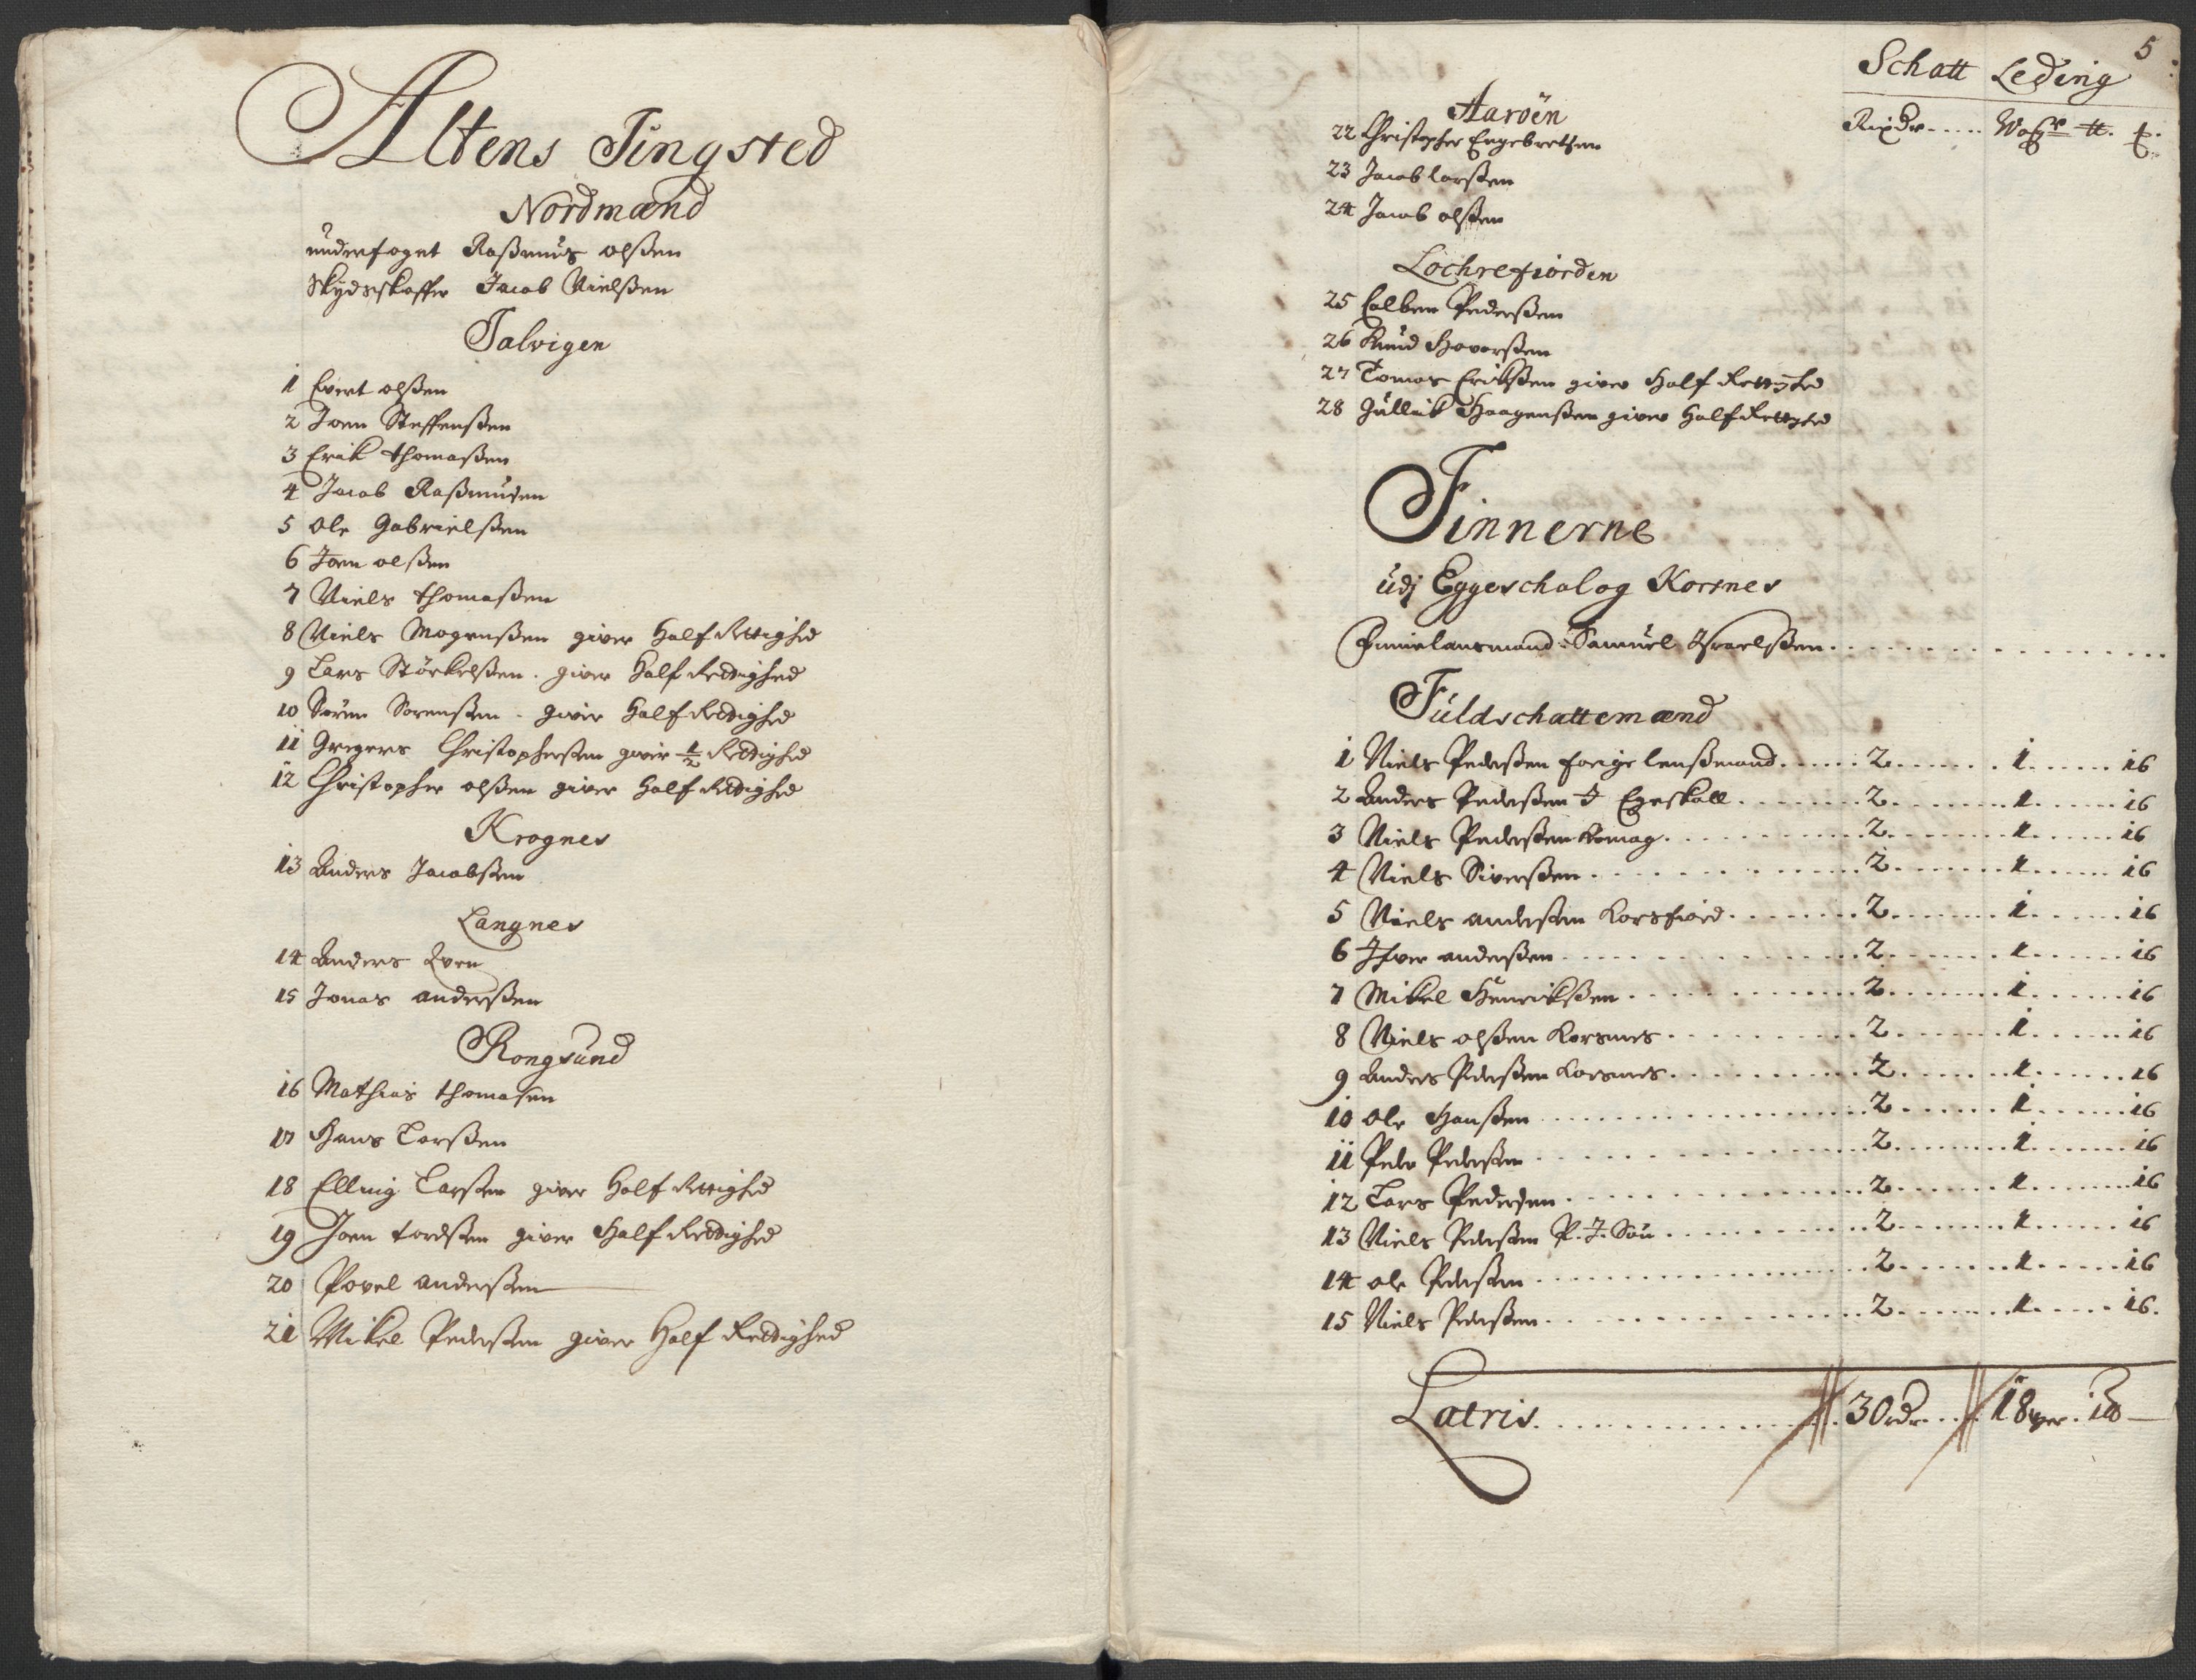 Altens Tingsted
Nordmænd
underfoget Rasßmus olßen
Skydsskaffer Jacob Nielßen
Talvigen
1 Evert olßen
2 Joen Steffenßen
3 Erik thomaßen
4 Jacob Raßmusen
5 Ole Gabrielßen
6 Joen olßen
7 Niels thomaßen
8 Niels Mogenßen giver Half Rettighed
9 Lars Störkelßen . giver Half Rettighed
10 Sören Sorenßen . giver Half Rettighed
11 Gregers Christopherßen giver ½ Rettighed
12 Christopher olßen giver Half Rettighed
Krognes
13 Anders Jacobßen
Langnes
14 Anders Qven
15 Jonas anderßen
Rongsund
16 Mathias thomasen
17 Hans Larßen
18 Elling Larßen giver Half Rettighed
19 Joen tordßen giver Half Rettighed
20 Povel anderßen
21 Mikel Pederßen giver Half Rettighed
5
Schatt Leding
Rixdr ..... Woger tt.
Aaröen
22 Christopher Engebretsen
23 Jacob Larßen
24 Jacob olßen
Lochrefiorden
25 Pederßen
26 Knud Hovorßen
27 Tomas Erikßen giver Half Rettighed
28 Gullik Haagenßen giver Half Rettighed
Finnerne
udj Eggeschal og Korsnes
Finnelansmand Samuel Israelßen
Fuldschattemænd
1 Niels Pederßen forige lensmand ..... 2 ..... 1 ..... 16
2 Anders Pederßen I Egeskall ..... 2 ..... 1 ..... 16
3 Niels Pederßen Komag ..... 2 ..... 1 ..... 16
4 Niels Siverßen ..... 2 ..... 1 ..... 16
5 Niels anderßen Korsfiord ..... 2 ..... 1 ..... 16
6 Ifver anderßen ..... 2 ..... 1 ..... 16
7 Mikel Henrikßen ..... 2 ..... 1 ..... 16
8 Niels olßen Korsnes ..... 2 ..... 1 ..... 16
9 Anders Pderßen Korsnes ..... 2 ..... 1 ..... 16
10 Ole Hanßen ..... 2 ..... 1 ..... 16
11 Peder Pederßen ..... 2 ..... 1 ..... 16
12 Lars Pedersen ..... 2 ..... 1 ..... 16
13 Niels Pederßen P. J. Sön ..... 2 ..... 1 ..... 16
14 ole Pederßen ..... 2 ..... 1 ..... 16
15 Niels Pederßen ..... 2 ..... 1 ..... 16.
Latris ..... 30 rdr ..... 18